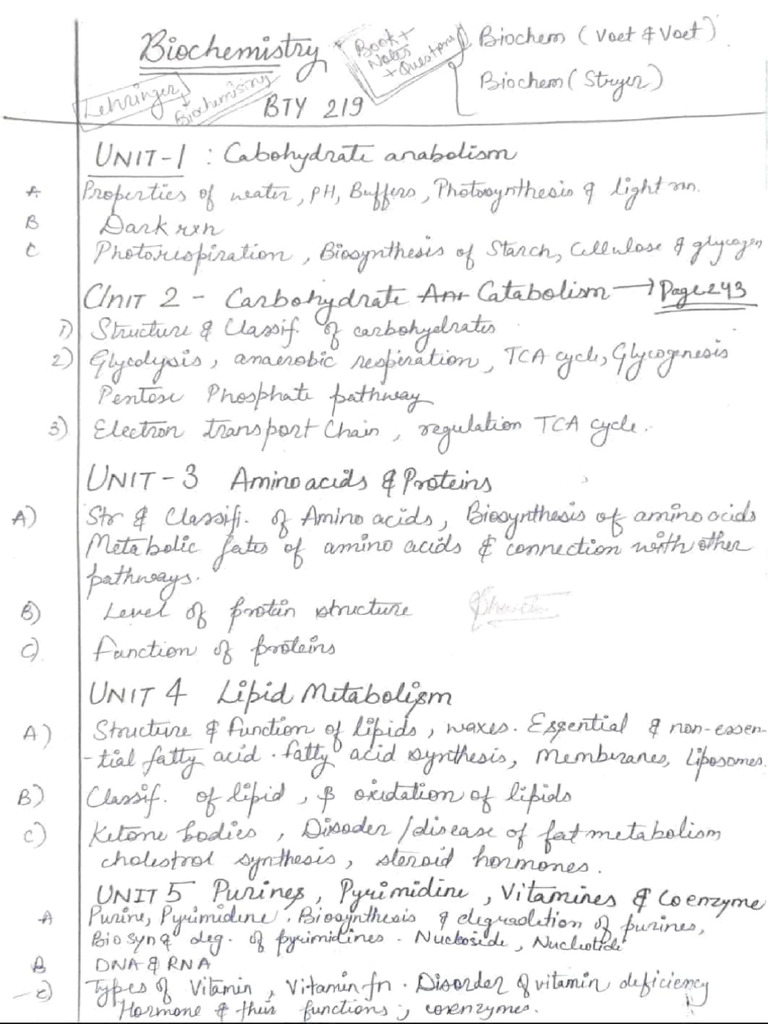 Biochemistry
Book + Notes + Question
Biochem (Voet & Voet)
Biochem (Stryer)
Lehninger Biochemistry
BTY 219
UNIT-1 : Cabohydrate anabolism
A Properties of water, PH, Buffers, Photosynthesis & light rxn.
B Dark rxn
C Photorespiration, Biosynthesis of Starch, Cellulose & glycogen
UNIT 2 - Carbohydrate Catabolism → Page 243
1) Structure & Classif. of carbohydrates
2) Glycolysis, anaerobic respiration, TCA cycle, Glycogenesis
Pentose Phosphate pathway
3) Electron transport Chain, regulation TCA cycle.
UNIT-3 Amino acids & Proteins
A) Str & Classif. of Amino acids, Biosynthesis of amino acids
Metabolic fates of amino acids & connection with other
pathways.
B) Level of protin structure
C) Function of proteins
UNIT 4 Lipid Metabolism
A) Structure & function of lipids, waxes. Essential & non-essen-
-tial fatty acid. fatty acid synthesis, Membranes, Liposomes.
B) Classif. of lipid, β oxidation of lipids
C) Ketone bodies, Disoder/disease of fat metabolism
cholestrol synthesis, steroid hormones.
UNIT 5 Purines, Pyrimidine, Vitamines & Coenzyme
A Purine, Pyrimidene. Biosynthesis & degradetion of purines,
Bio syn & deg. of pyrimidines. Nucleoside, Nucleotide
B DNA & RNA
C) Types of Vitamin, Vitamin fn. Disorder of vitamin deficiency
Hormone & their functions, coenzymes.